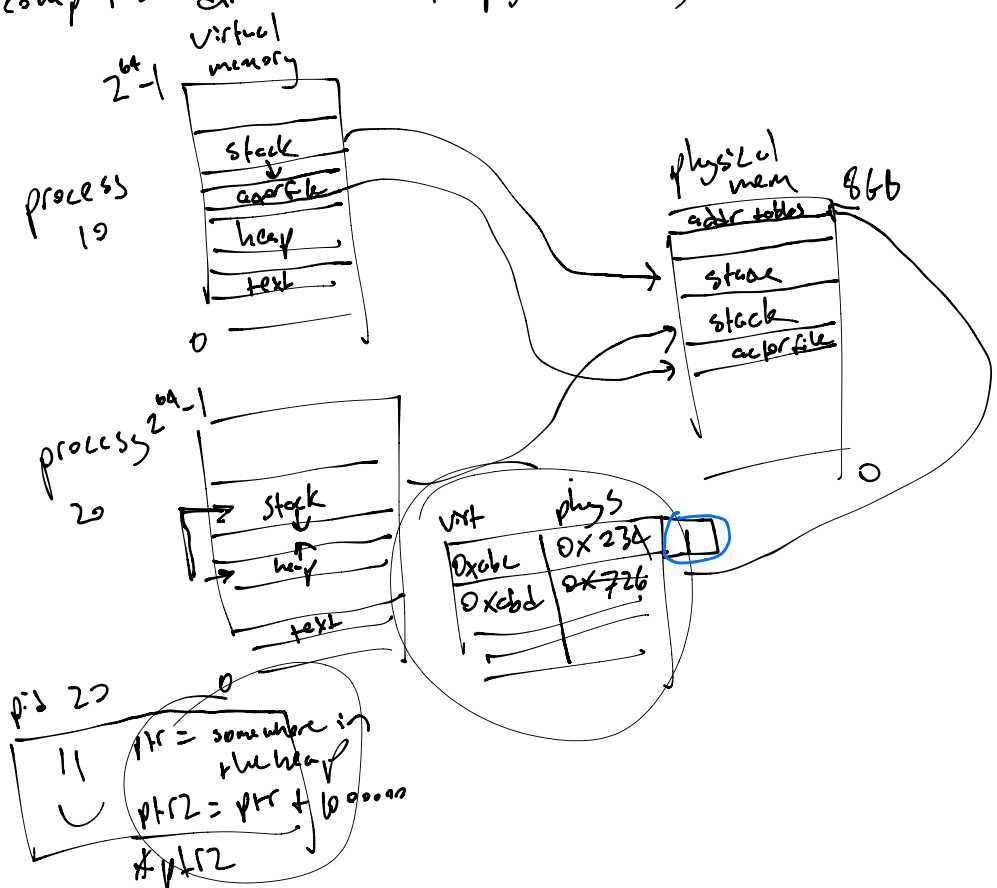 virtual
memory
2^64-1
stack
process
10
heap
text
0
physical
mem
8GB
addr tables
stack
stack
actorfile
0
process
20
2^64-1
stack
heap
text
0
virt
phys
0xabc
0x234
0xabd
0x726
pid 20
ptr = somewhere in
the heap
ptr2 = ptr + 1000000
*ptr2